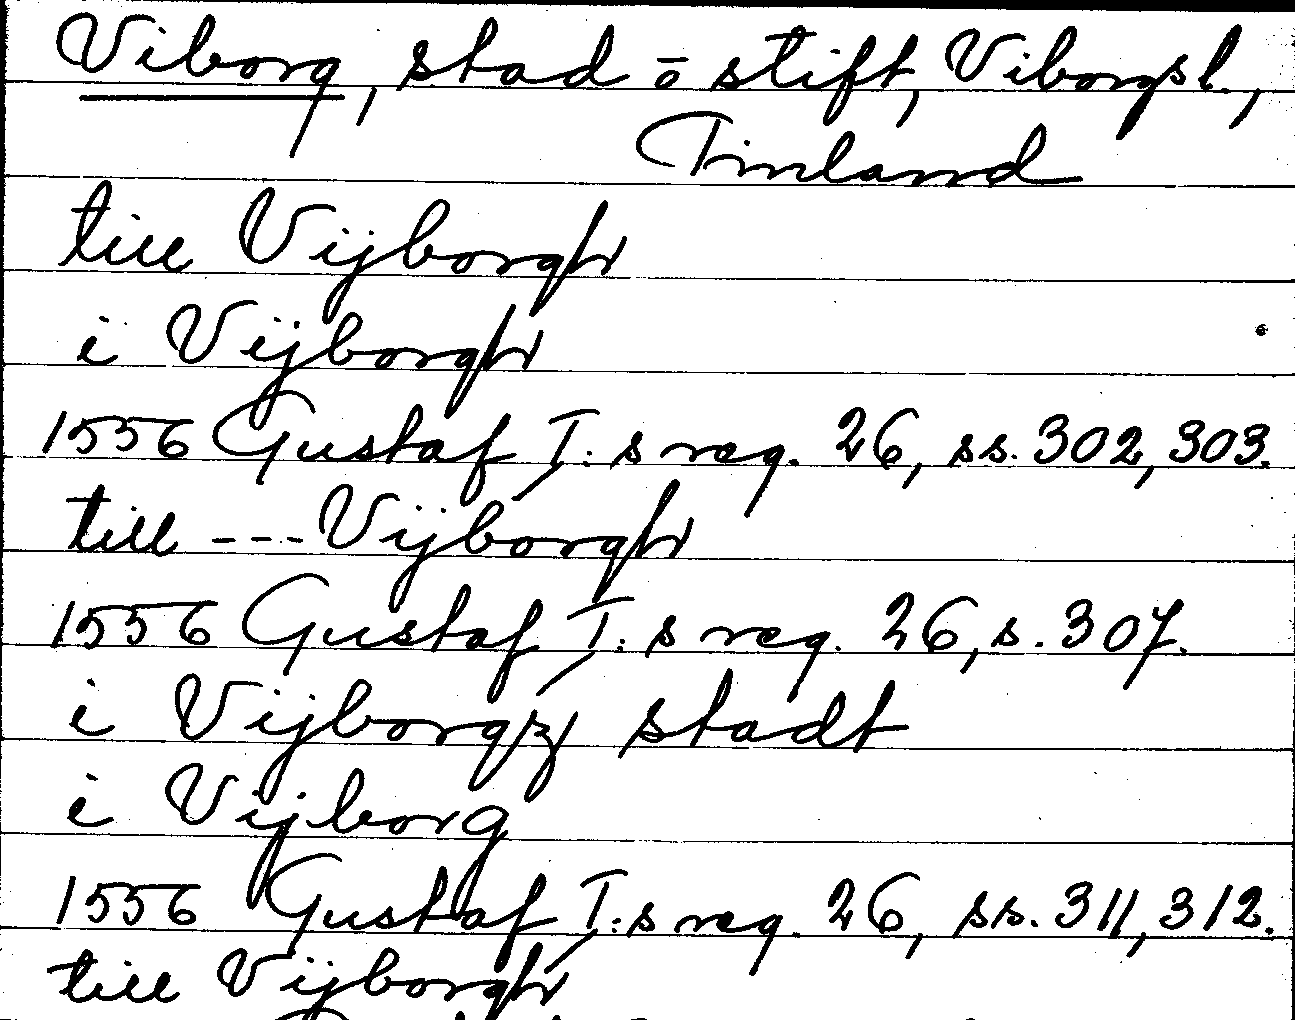 Viborg, stad o stift, Viborgsl.,
Finland
till Vijborgh
i Vijborgh
1556 Gustaf I:s reg. 26, ss. 302, 303.
till --- Vijborgh
1556 Gustaf I:s reg. 26, s. 307.
i Vijborgz stadt
i Vijborg
1556 Gustaf I:s reg. 26, ss. 311, 312.
till Vijborgh